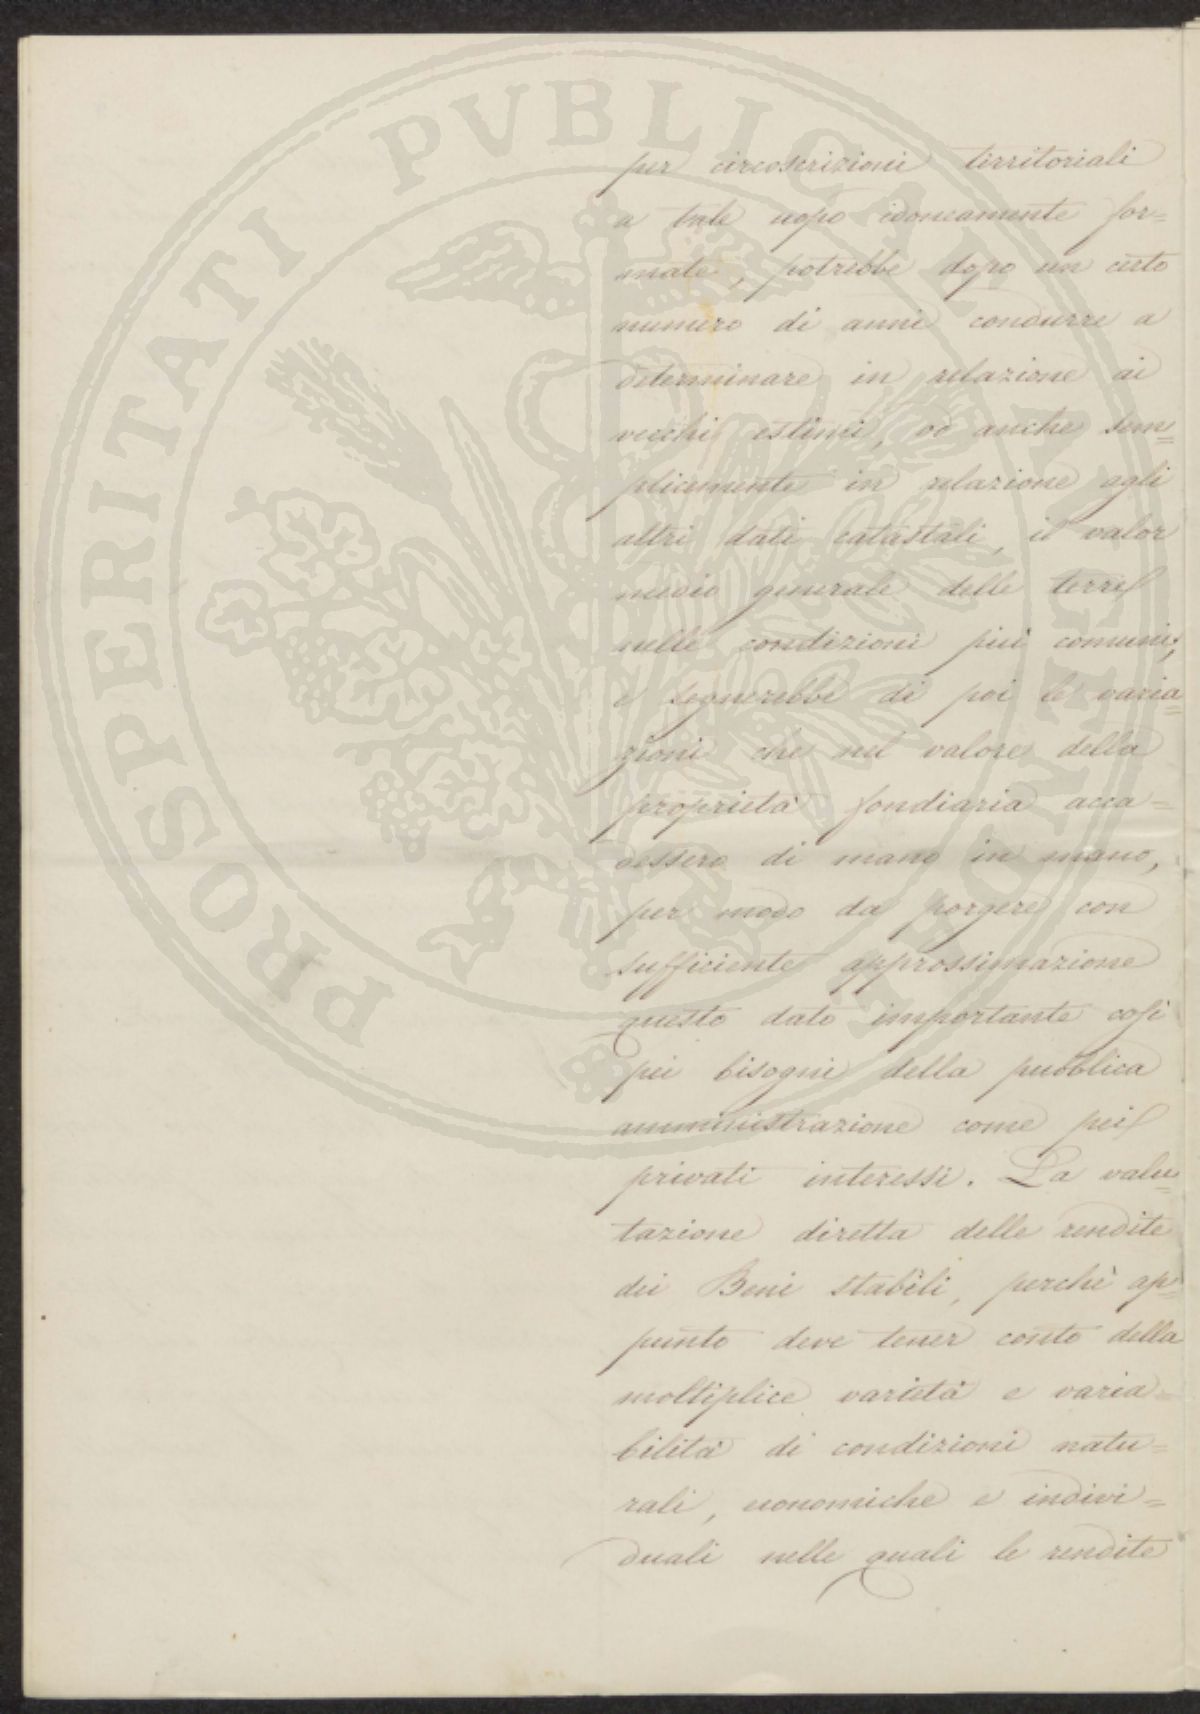 per circoscrizioni territoriali
a tale uopo idoneamente for=
mate, potrebbe dopo un certo
numero di anni condurre a
determinare in relazione ai
vecchi estimi, od anche sem=
plicemente in relazione agli
altri dati catastali, il valor
medio generale delle terre
nelle condizioni più comuni,
e segnerebbe di poi le varia=
zioni che nel valore della
proprietà fondiaria acca=
dessero di mano in mano,
per modo da porgere con
sufficiente approssimazione
questo dato importante così
pei bisogni della pubblica
amministrazione come pei
privati interessi. La valu=
tazione diretta delle rendite
dei Beni stabili, perchè ap=
punto deve tener conto della
moltiplice varietà e varia=
bilità di condizioni natu=
rali, economiche e indivi=
duali nelle quali le rendite
PROSPERITATI PVBLICAE AVGENDAE